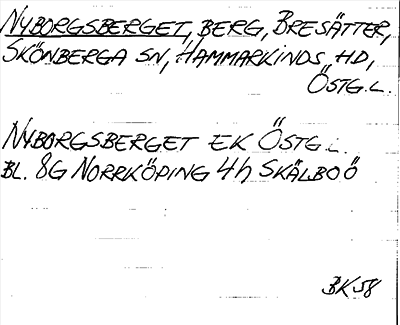 NYBORGSBERGET, BERG, BRESÄTTER,
SKÖNBERGA SN, HAMMARKINDS HD,
ÖSTG.L.
NYBORGSBERGET EK ÖSTG.L.
BL. 8G NORRKÖPING 4h SKÄLBOÖ
BK58